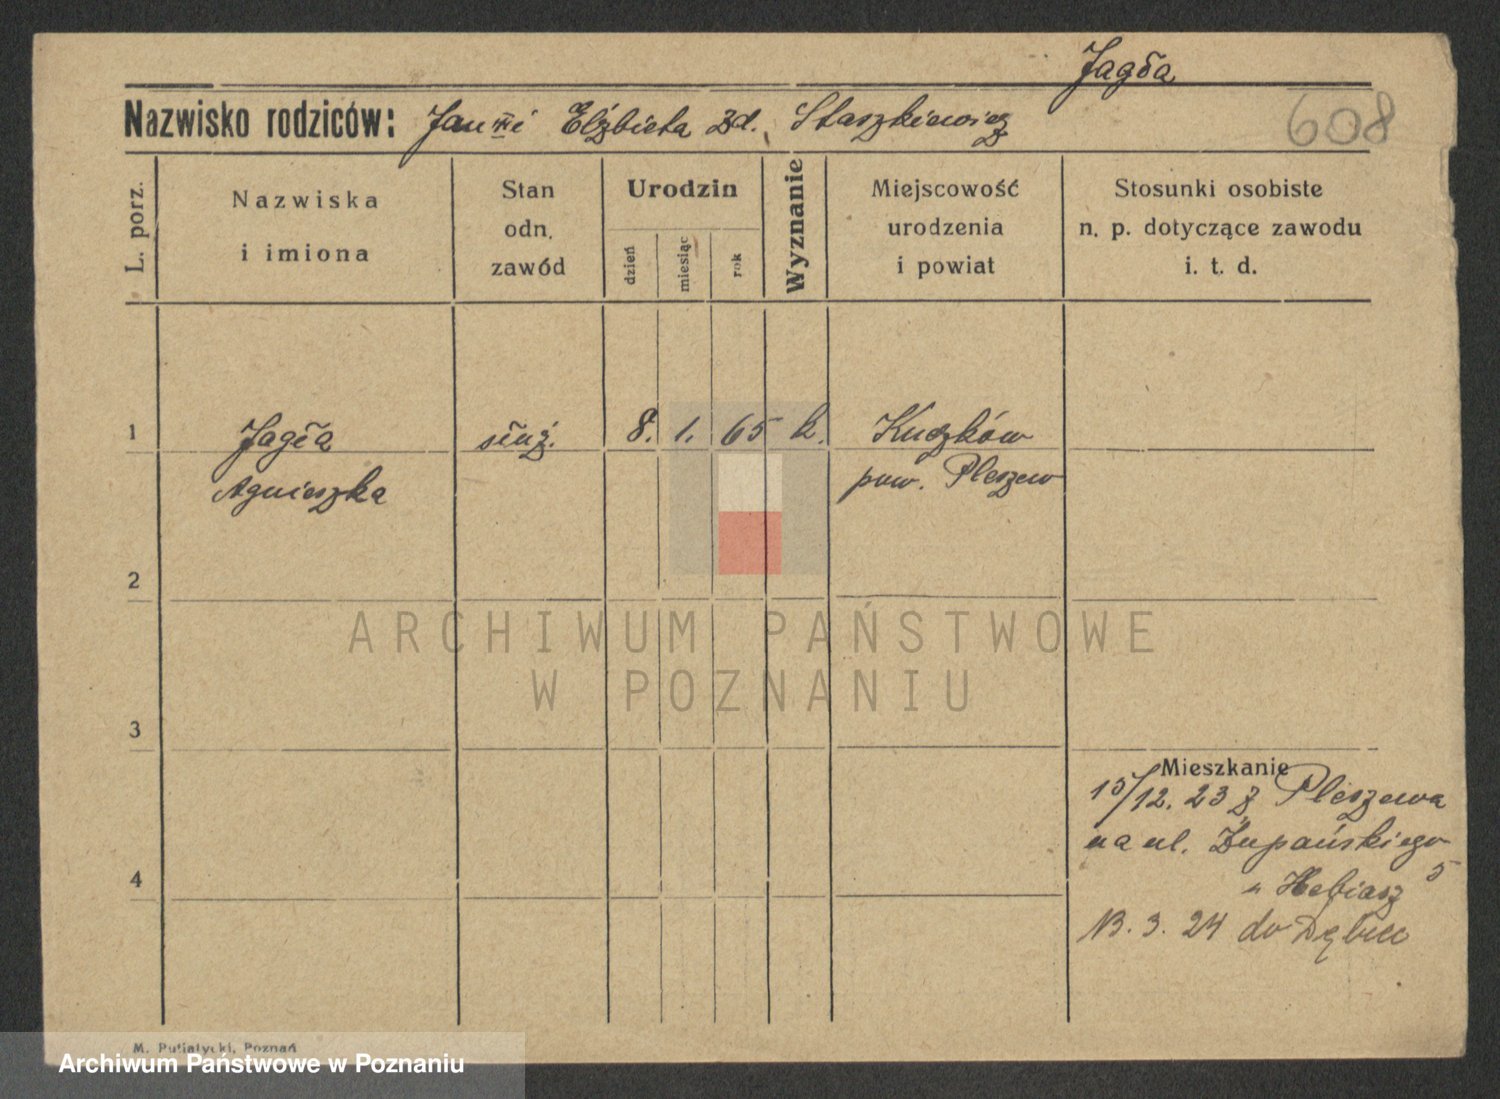 Jagła
608
Nazwisko rodziców: Jan i Elżbieta zd. Staszkiewicz
L. porz.
Nazwiska
i imiona
Stan
odn.
zawód
Urodzin
dzień
miesiąc
rok
Wyznanie
Miejscowość
urodzenia
i powiat
Stosunki osobiste
n. p. dotyczące zawodu
i. t. d.
1 Jagła służ. 8. 1. 65 k. Kuczków
Agnieszka pow. Pleszew
2
ARCHIWUM PAŃSTWOWE
W POZNANIU
3
Mieszkanie
15/12. 23 z Pleszewa
na ul. Żupańskiego
4
5
3. 24 do Dębiec
M. Putiatycki, Poznań
Archiwum Państwowe w Poznaniu